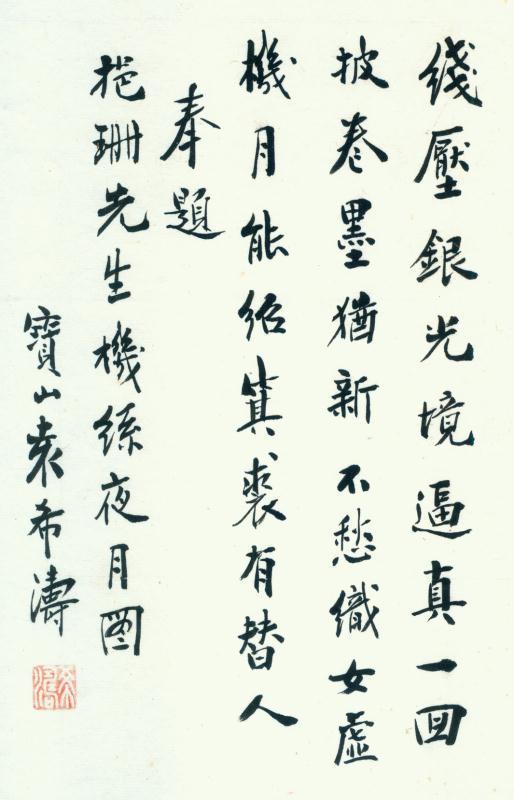 綫壓銀光境逼真一回
披卷墨猶新不愁織女虛
機月能紹箕裘有替人
奉題
挹珊先生機絲夜月圖
寶山袁希濤
希濤